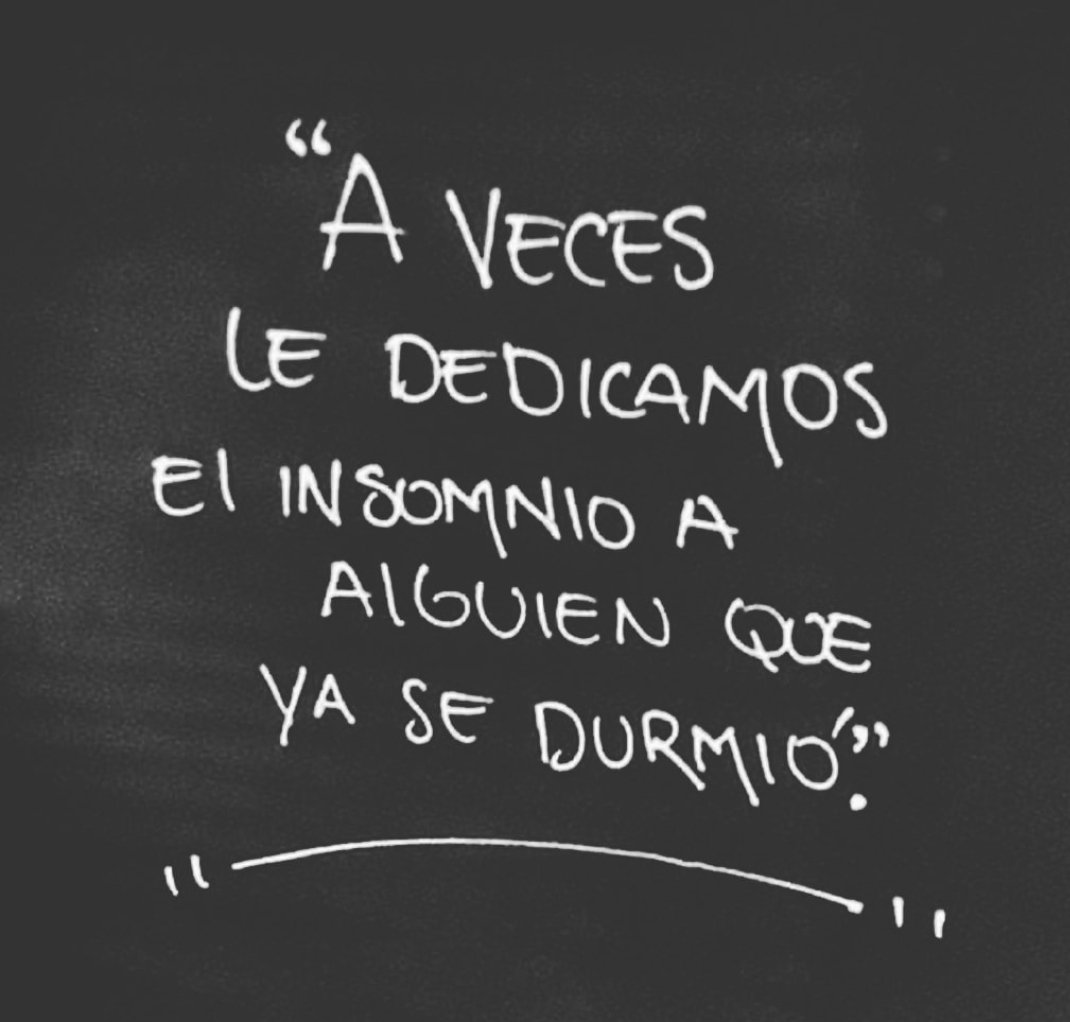 “A VECES
LE DEDICAMOS
El INSOMNIO A
AlGUIEN QUE
YA SE DURMIÓ.”